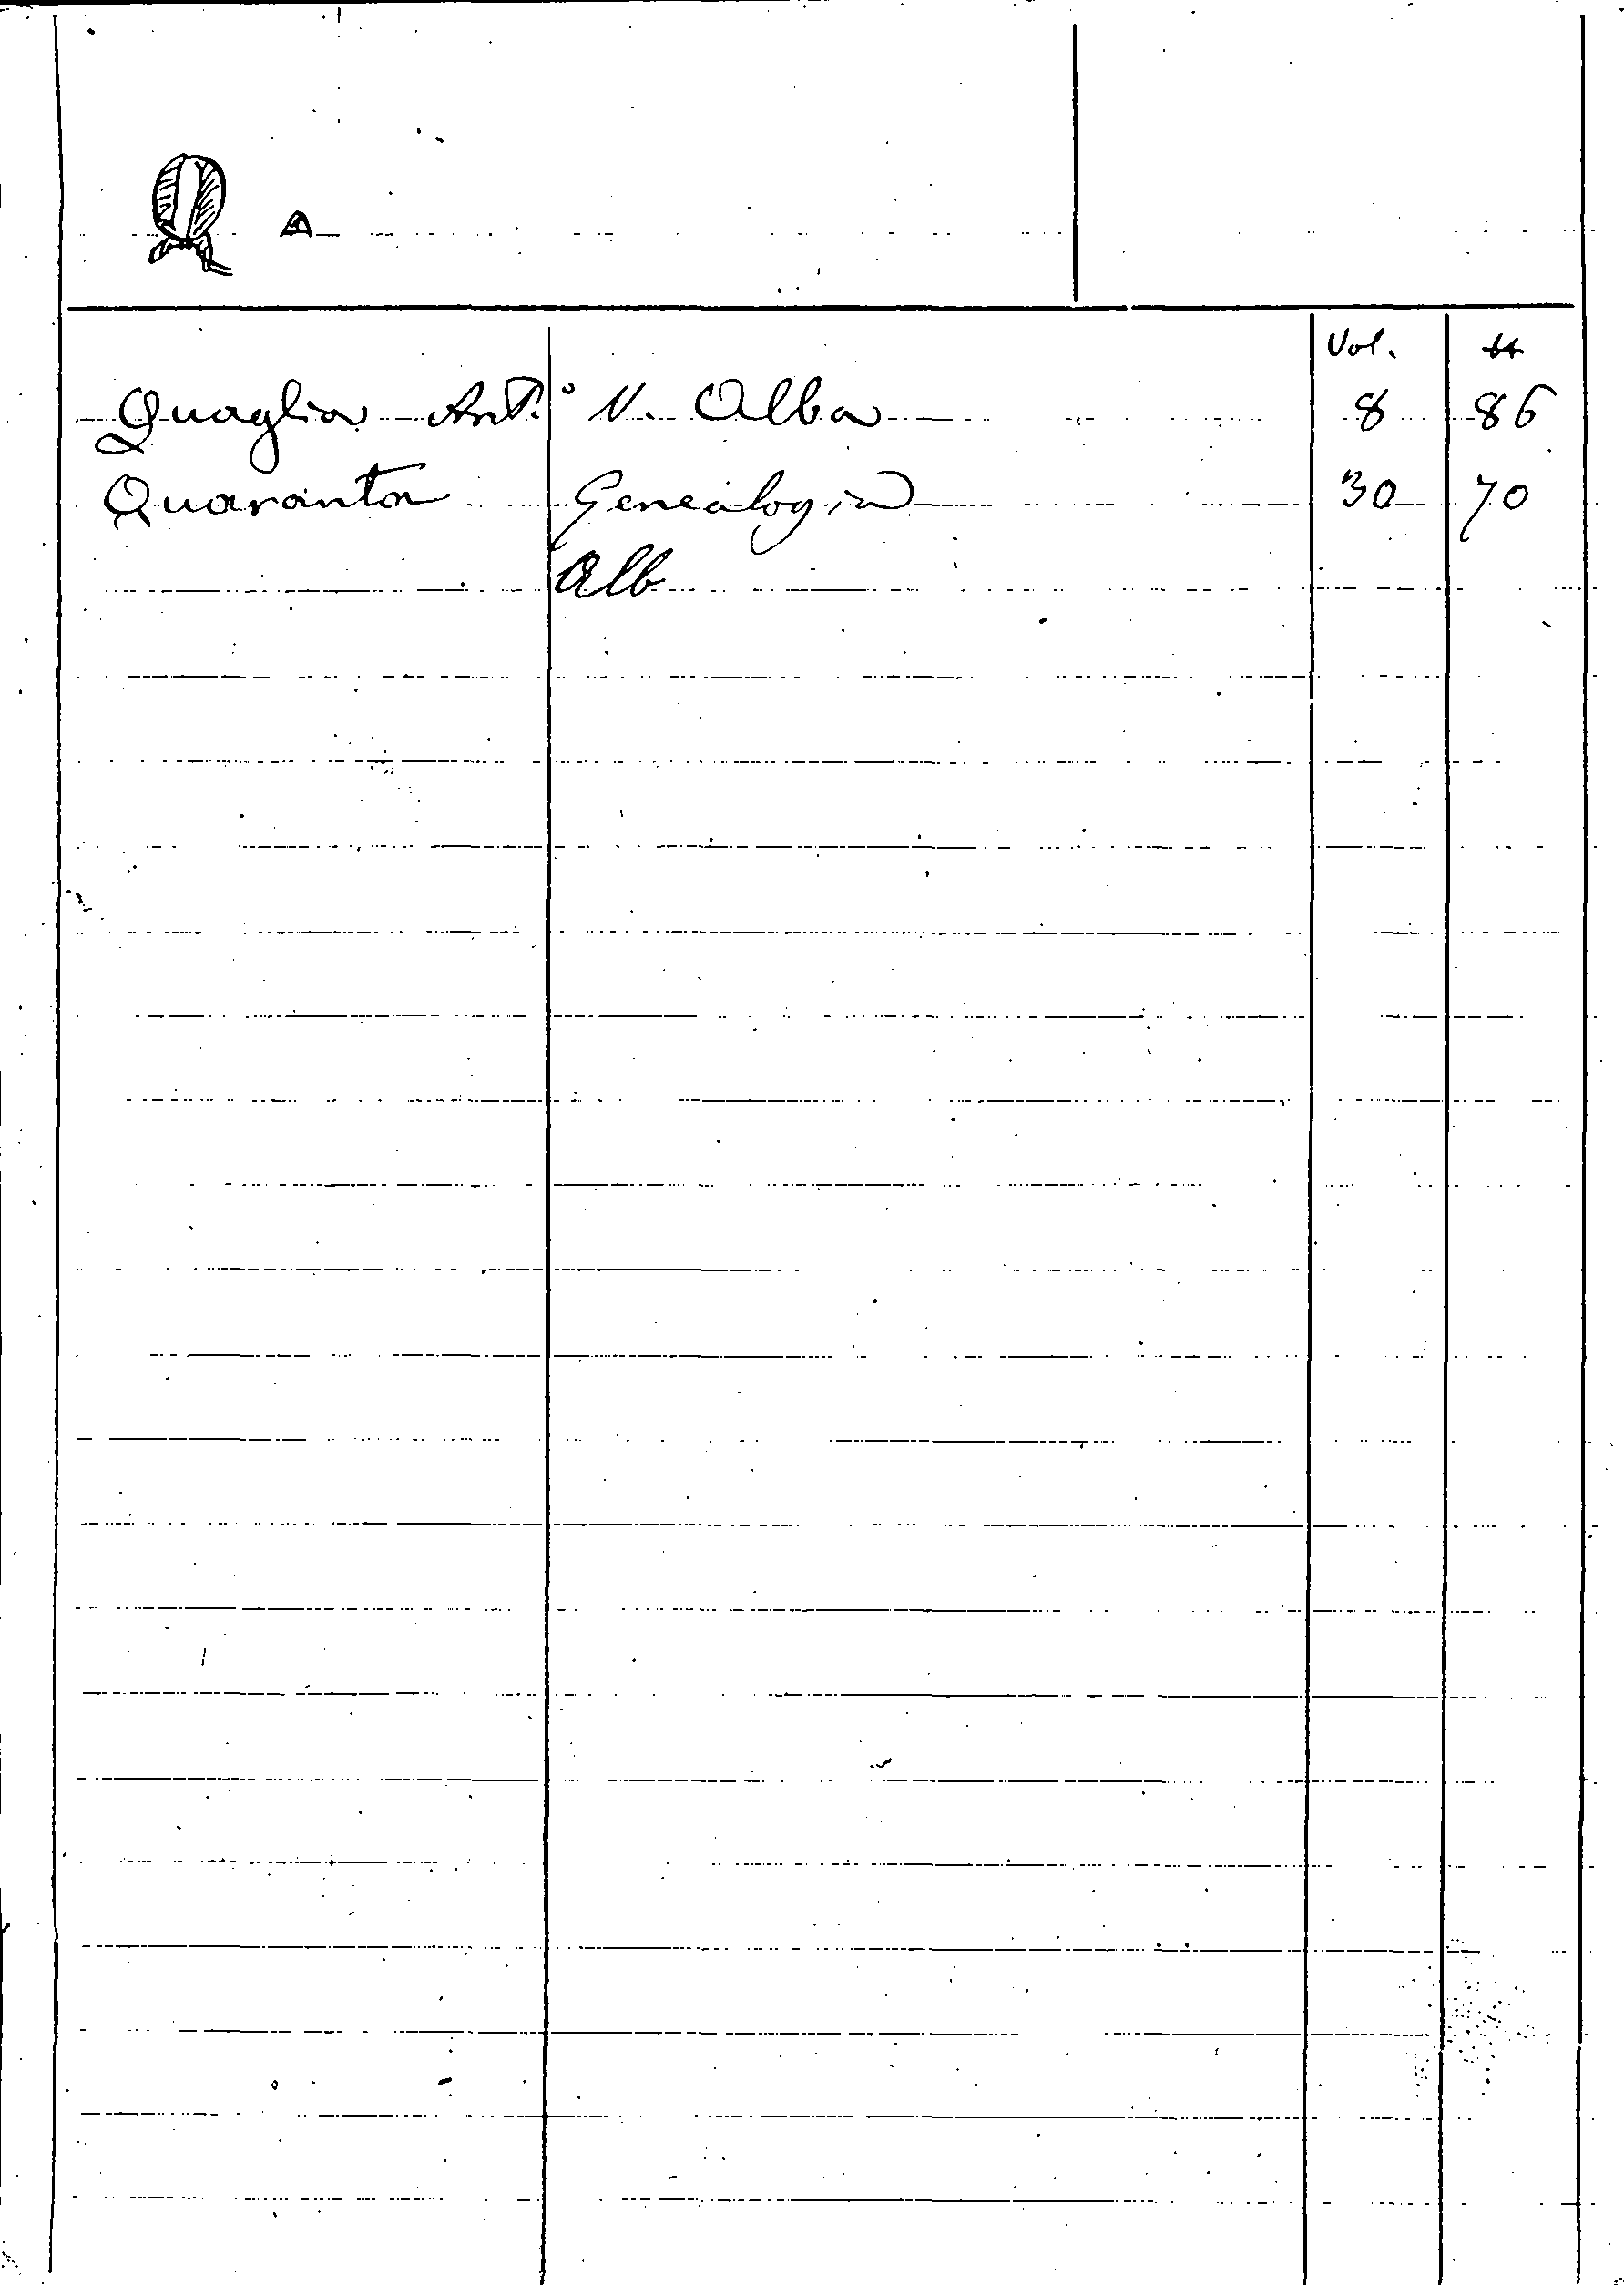 Q A
Vol. #
Quaglia Ant.° V. Alba 8 86
Quaranta Genealogia 30 70
Alb